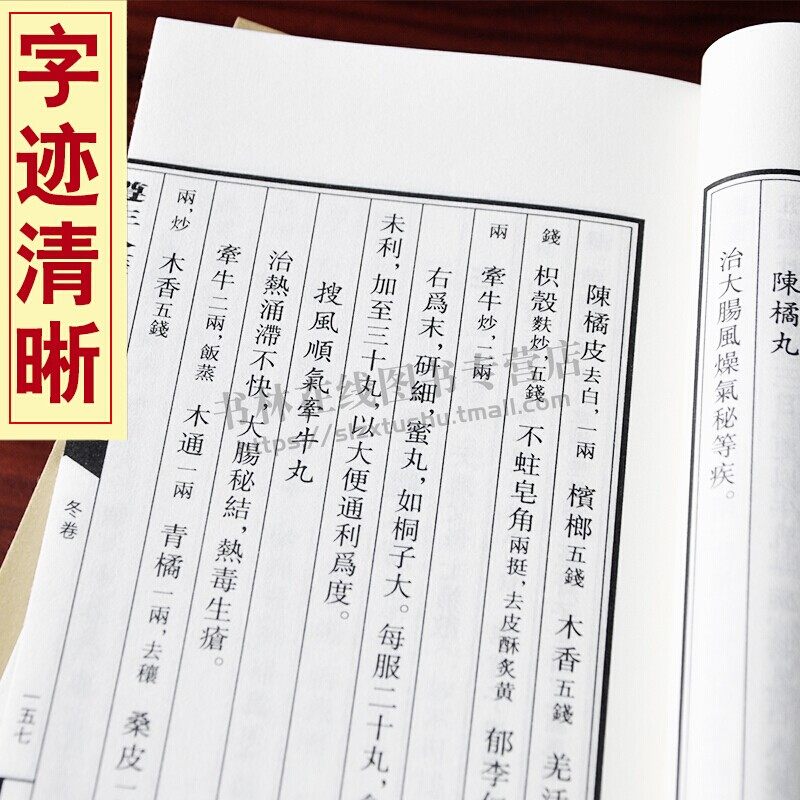 字迹清晰
陳橘丸
治大腸風燥氣秘等疾。
陳橘皮去白,一兩 檳榔五錢 木香五錢 羌活
錢 枳殼麩炒,五錢 不蛀皂角兩挺,去皮酥炙黄 郁李
兩 牽牛炒,二兩
右爲末,研細,蜜丸,如桐子大。每服二十丸,
未利,加至三十丸,以大便通利爲度。
搜風順氣牽牛丸
治熱涌滯不快,大腸秘結,熱毒生瘡。
牽牛二兩,飯蒸 木通一兩 青橘一兩,去穰 桑皮一
兩,炒 木香五錢
冬卷
一五七
书林在线图书专营店
https://slzxtushu.tmall.com